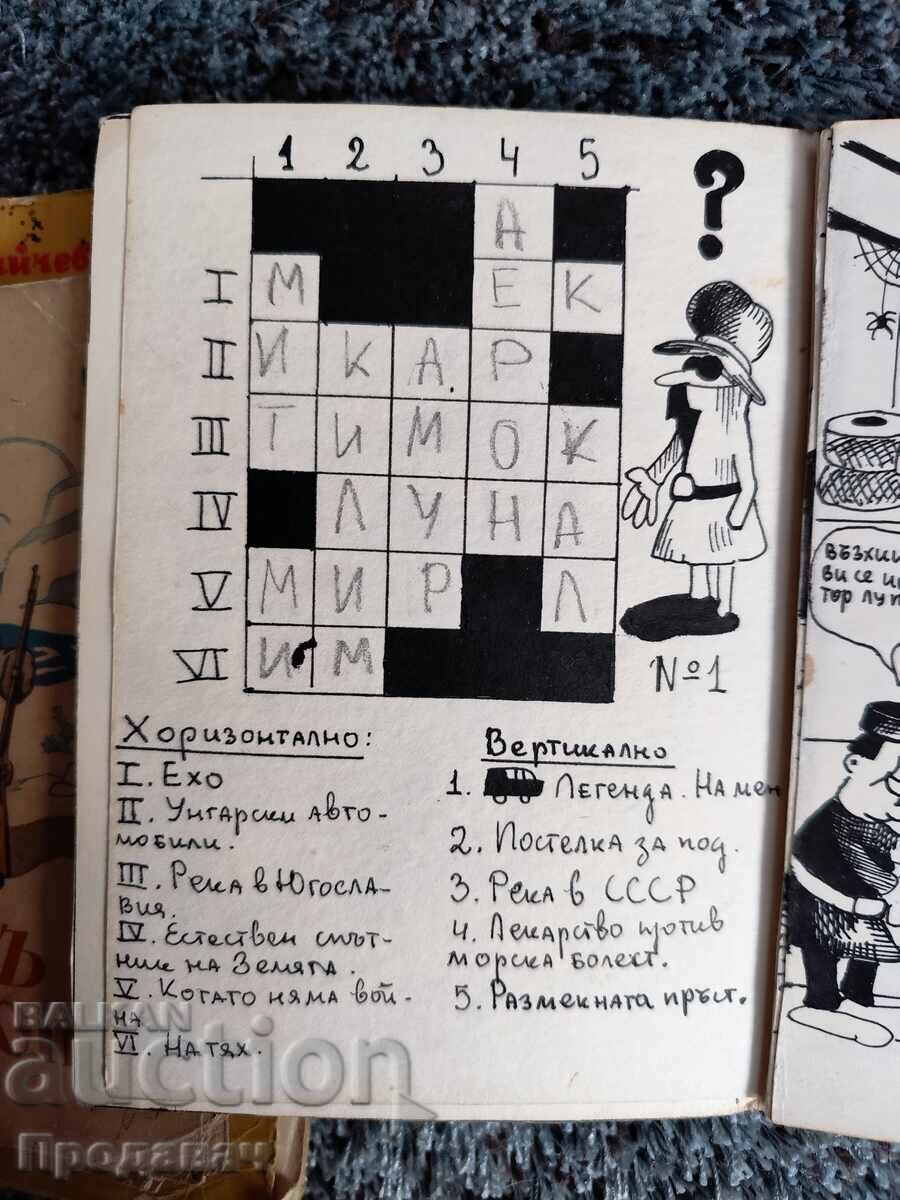 1 2 3 4 5
А
I М Е К
II И К А. Р
III Т И М О К
IV Л У Н А
V М И Р Л
VI И М
?
№1
Хоризонтално:
I. Ехо
II. Унгарски авто-
мобили.
III. Река в Югосла-
вия.
IV. Естествен спът-
ник на Земята.
V. Когато няма вой-
на
VI. На тях.
Вертикално
1. Легенда. На мен
2. Постелка за под.
3. Река в СССР
4. Лекарство против
морска болест.
5. Размекната пръст.
ви се
йчев
BALKAN
auction
Продавач